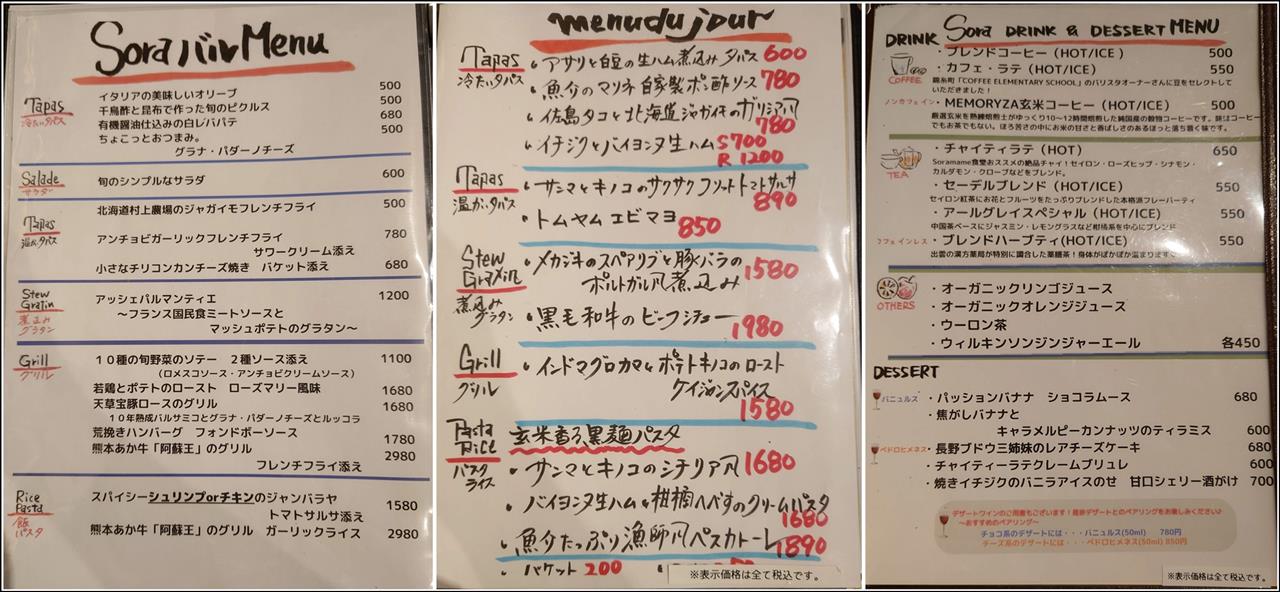 Sora バル Menu
Tapas
冷たいタパス
イタリアの美味しいオリーブ 500
千鳥酢と昆布で作った旬のピクルス 680
有機醤油仕込みの白レバパテ 500
ちょこっとおつまみ。
グラナ・パダーノチーズ
Salade
サラダ
旬のシンプルなサラダ 600
Tapas
温かいタパス
北海道村上農場のジャガイモフレンチフライ 500
アンチョビガーリックフレンチフライ 780
サワークリーム添え
小さなチリコンカンチーズ焼き バケット添え 680
Stew
Gratin
煮込み
グラタン
アッシェパルマンティエ 1200
～フランス国民食ミートソースと
マッシュポテトのグラタン～
Grill
グリル
１０種の旬野菜のソテー ２種ソース添え 1100
（ロメスコソース・アンチョビクリームソース）
若鶏とポテトのロースト ローズマリー風味 1680
天草宝豚ロースのグリル 1680
１０年熟成バルサミコとグラナ・パダーノチーズとルッコラ
荒挽きハンバーグ フォンドボーソース 1780
熊本あか牛「阿蘇王」のグリル 2980
フレンチフライ添え
Rice
Pasta
飯
パスタ
スパイシーシュリンプorチキンのジャンバラヤ 1580
トマトサルサ添え
熊本あか牛「阿蘇王」のグリル ガーリックライス 2980
menu du jour
Tapas
冷たいタパス
・アサリと白豆の生ハム煮込みタパス 600
・魚介のマリネ 自家製ポン酢ソース 780
・佐島タコと北海道ジャガイモのガリシア風 780
・イチジクとバイヨンヌ生ハム S700
R 1200
Tapas
温かいタパス
・サンマとキノコのサクサクフリット トマトサルサ 890
・トムヤムエビマヨ 850
Stew
Gratin
煮込み
グラタン
・メカジキのスペアリブと豚バラの
ポルトガル風煮込み 1580
・黒毛和牛のビーフシチュー 1980
Grill
グリル
・インドマグロカマとポテトキノコのロースト
ケイジャンスパイス 1580
Pasta
Rice
パスタ
ライス
玄米香る黒麺パスタ
・サンマとキノコのシチリア風 1680
・バイヨンヌ生ハムと柑橘へべすのクリームパスタ 1680
・魚介たっぷり漁師風ペスカトーレ 1890
・バケット 200
※表示価格は全て税込です。
Sora DRINK & DESSERT MENU
DRINK
COFFEE
・ブレンドコーヒー（HOT/ICE） 500
・カフェ・ラテ（HOT/ICE） 550
錦糸町「COFFEE ELEMENTARY SCHOOL」のバリスタオーナーさんに豆をセレクトして
いただきました！
ノンカフェイン・MEMORYZA玄米コーヒー（HOT/ICE） 500
厳選玄米を熟練焙煎士がゆっくり10～12時間焙煎した純国産の穀物コーヒーです。味はコーヒー
でもお茶でもない。ほろ苦さの中にお米の甘さと香ばしさのあるほっと落ち着く味です。
TEA
・チャイティラテ（HOT） 650
Soramame食堂おススメの絶品チャイ！セイロン・ローズヒップ・シナモン・
カルダモン・クローブなどをブレンド。
・セーデルブレンド（HOT/ICE） 550
セイロン紅茶にお花とフルーツをたっぷりブレンドした本格派フレーバーティ
・アールグレイスペシャル（HOT/ICE） 550
中国茶ベースにジャスミン・レモングラスなど柑橘系を中心にブレンド
カフェインレス・ブレンドハーブティ(HOT/ICE) 550
出雲の漢方薬局が特別に調合した薬膳茶！身体がぽかぽか温まります
OTHERS
・オーガニックリンゴジュース
・オーガニックオレンジジュース
・ウーロン茶
・ウィルキンソンジンジャーエール 各450
DESSERT
バニュルス ・パッションバナナ ショコラムース 680
・焦がしバナナと
キャラメルピーカンナッツのティラミス 600
ペドロヒメネス ・長野ブドウ三姉妹のレアチーズケーキ 680
・チャイティーラテクレームブリュレ 600
・焼きイチジクのバニラアイスのせ 甘口シェリー酒がけ 700
デザートワインのご用意もございます！是非デザートとのペアリングをお楽しみください♪
～おすすめのペアリング～
チョコ系のデザートには・・・バニュルス(50ml) 780円
チーズ系のデザートには・・・ペドロヒメネス(50ml) 850円
※表示価格は全て税込です。